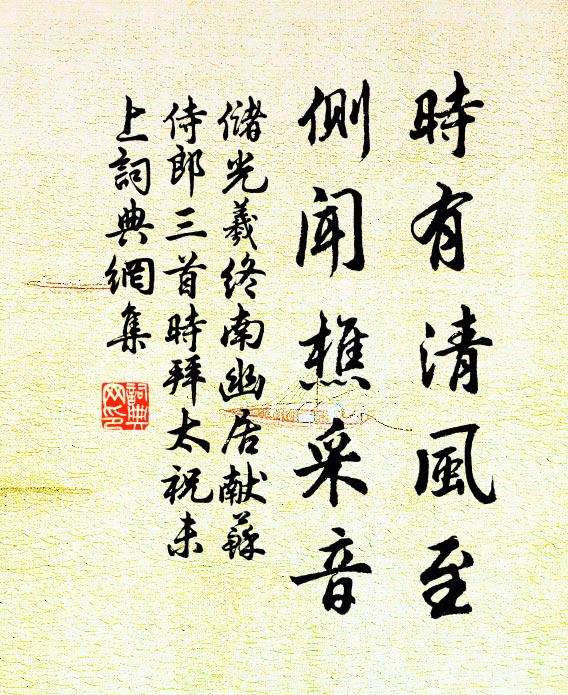 時有清風至
側聞樵采音
儲光羲終南幽居献蘇
侍郎三首時拜太祝未
上詞典網集
詞典
网印